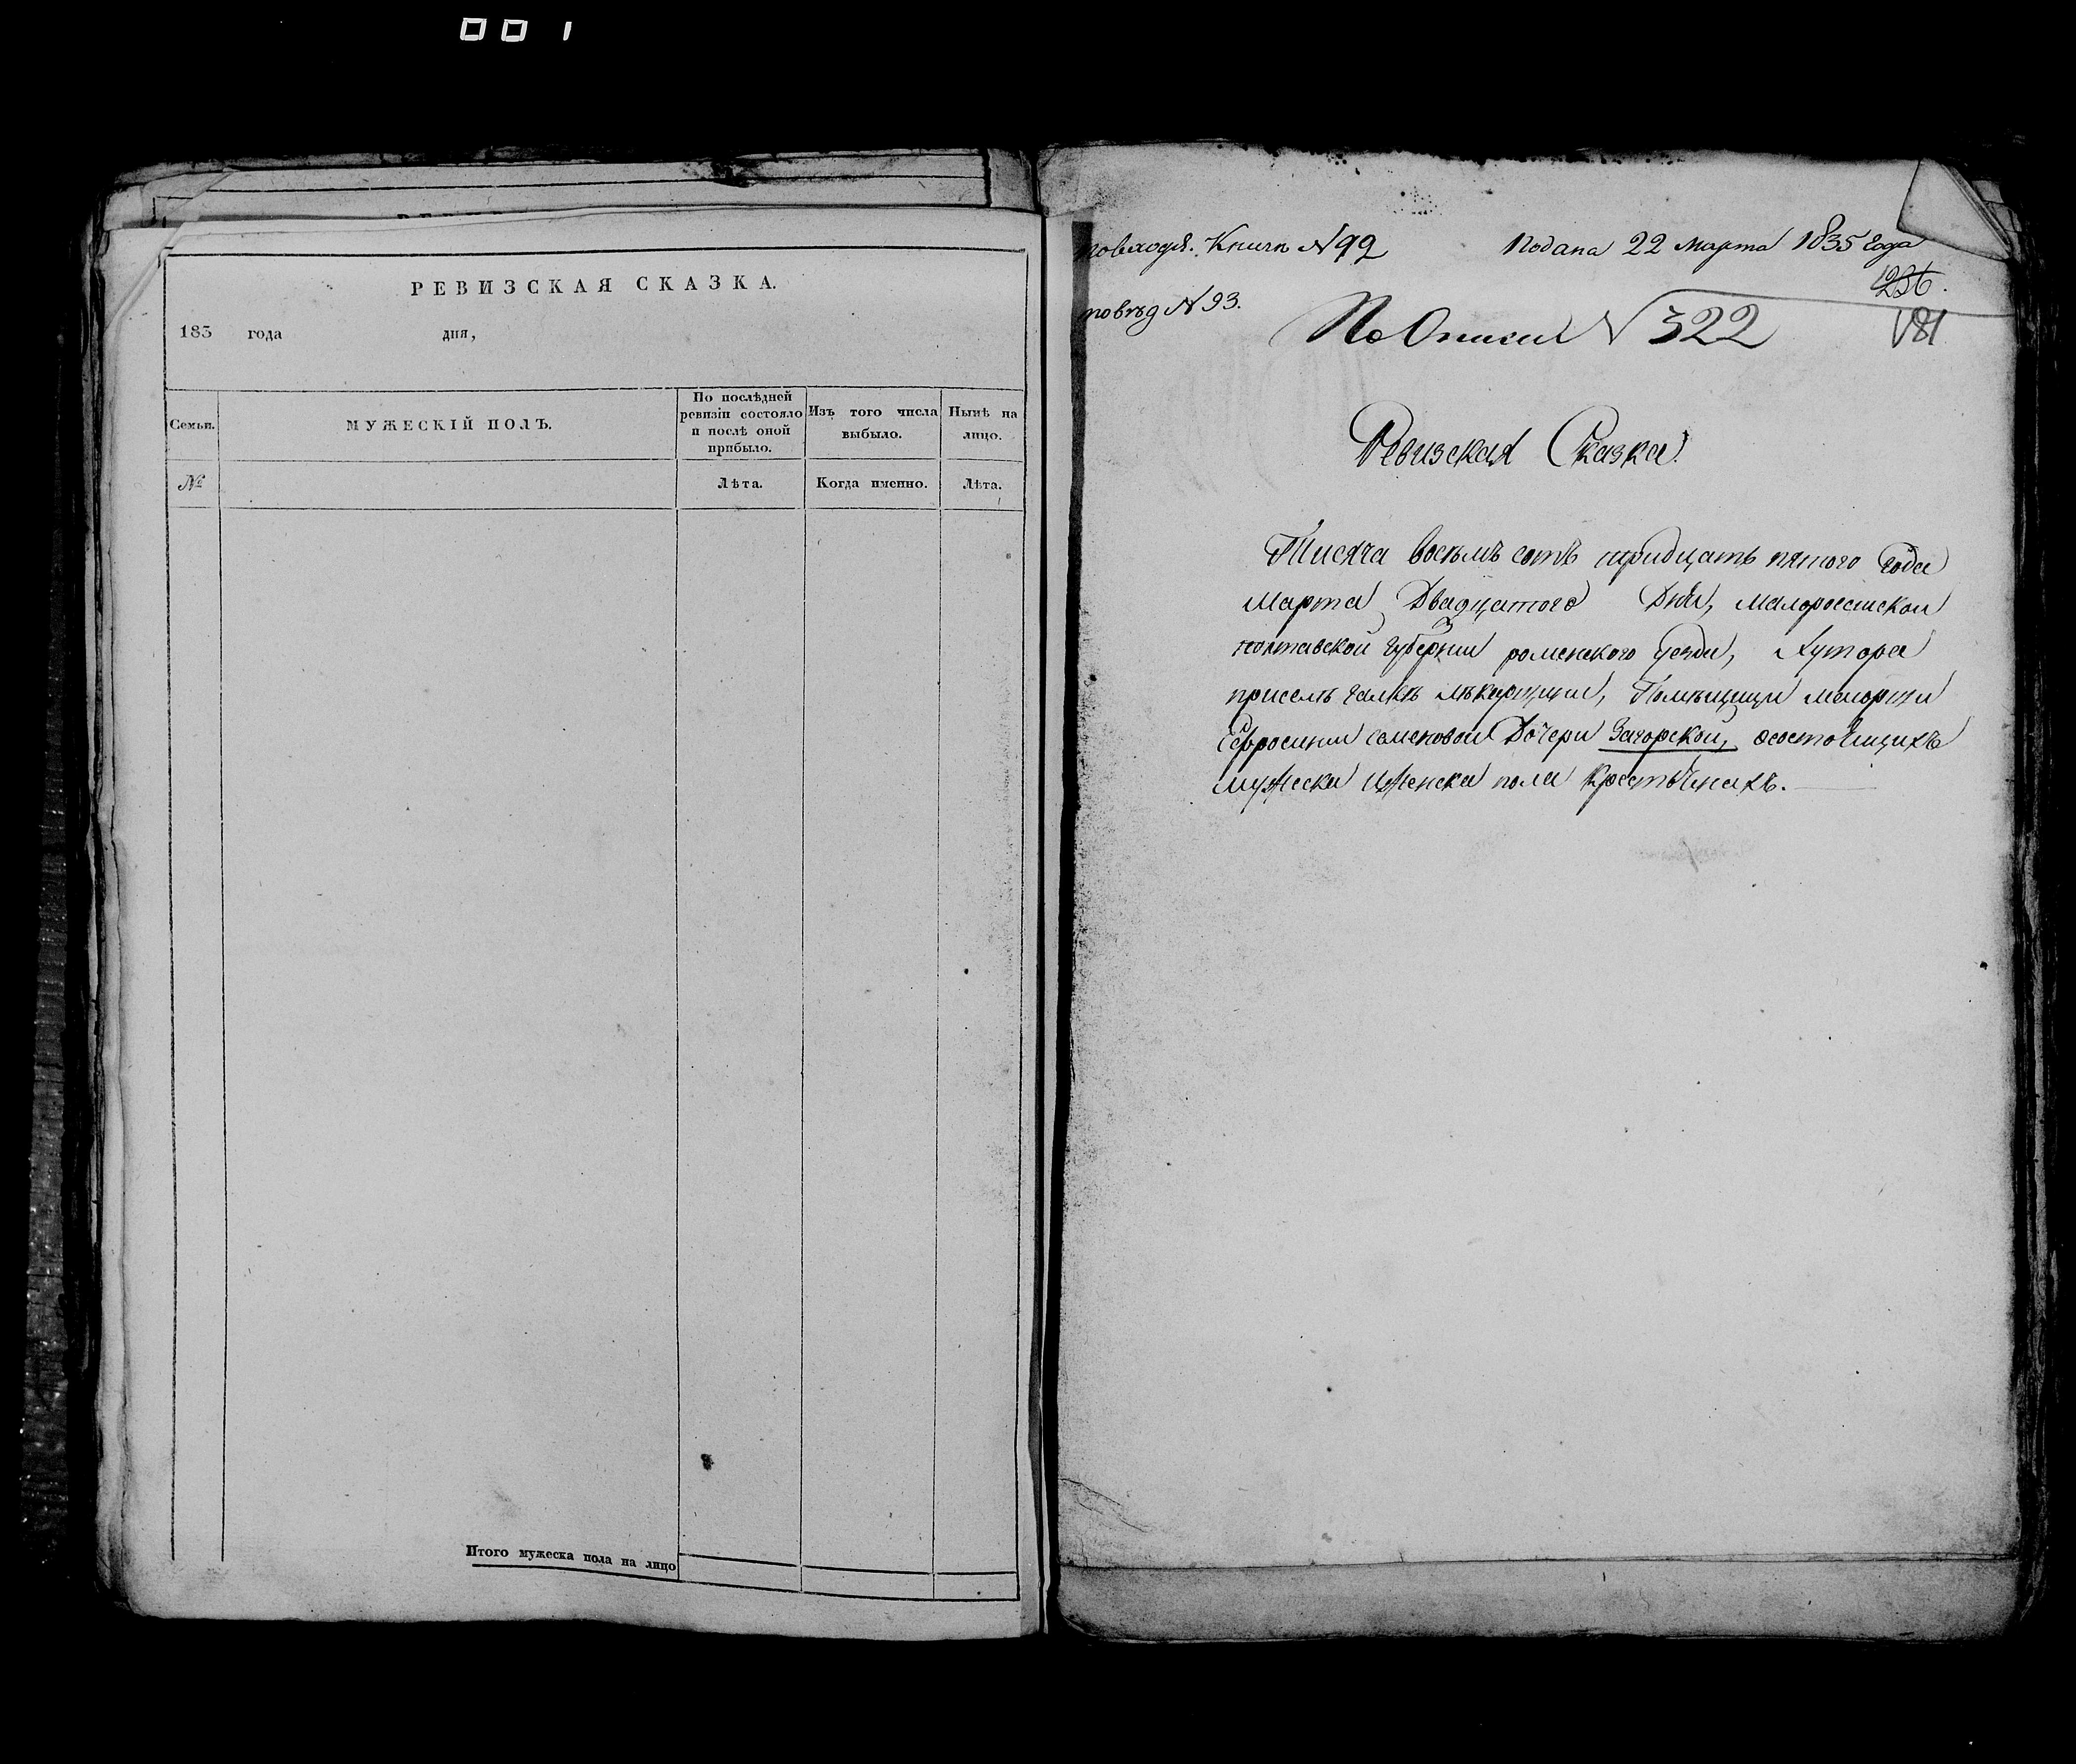 001
РЕВИЗСКАЯ СКАЗКА.
183 года дня,
Семьи.
МУЖЕСКІЙ ПОЛЪ.
По послѣдней
ревизіи состояло
и послѣ оной
прибыло.
Изъ того числа
выбыло.
Нынѣ на
лицо.
№
Лѣта.
Когда именно.
Лѣта.
Итого мужеска пола на лицо
Книги N 92
Подана 22 марта 1835 года
N 93.
236.
По Описи N 322
181
Ревизская Сказка.
Тисяча восьмъ сотъ тридцать пятого года
Марта Двадцатого Дня, Малоросииской
полтавской губернии роменского уезда, Хутора
при селъ Помъщици маиорши
Ефросинии семеновой Дочери Загорской, осостоящихъ
мужеска иженска пола Крестьянахъ.